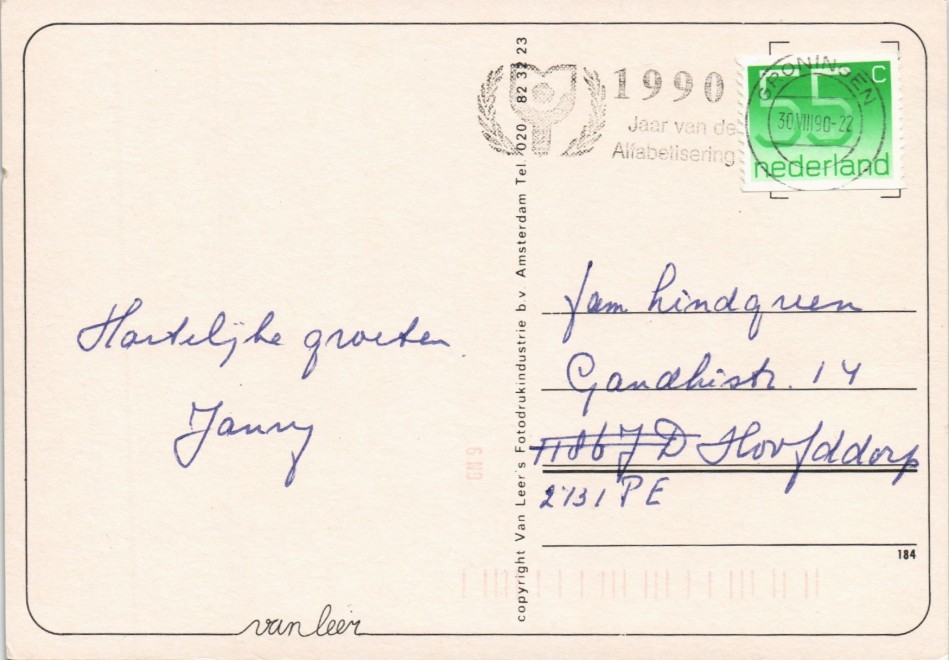 1990
Jaar van de
Alfabetisering
GRONINGEN
30.VIII.90-22
55 C
nederland
Hartelijke groeten
Janny
fam Lindgreen
Gandhistr. 14
1186 JD Hoofddorp
2131 PE
184
copyright Van Leer's Fotodrukindustrie b.v. Amsterdam Tel. 020 82 32 23
van leer